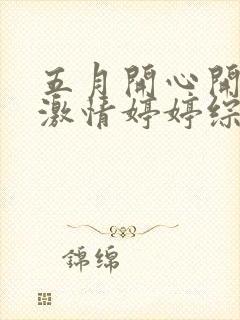 五月開心開
激情婷婷综
錦绵